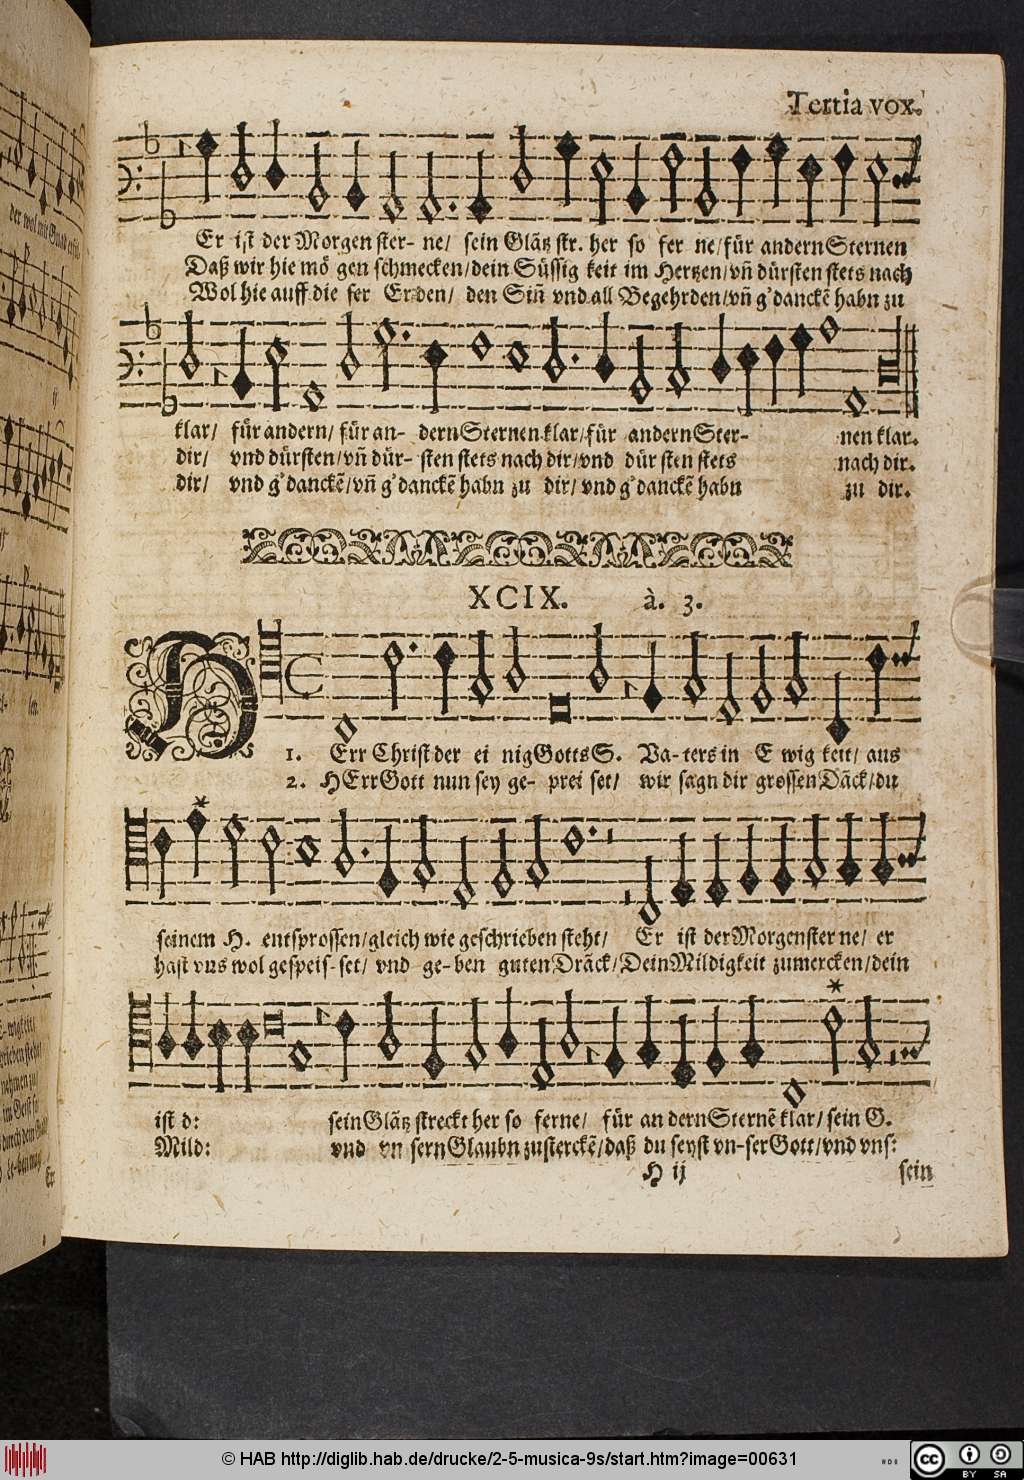 Tertia vox.
Er ist der Morgen ster- ne/ sein Glätz str. her so fer ne/ für andern Sternen
Daß wir hie mö gen schmecken/ dein Süssig keit im Hertzen/ vñ dürsten stets nach
Wol hie auff die ser Erden/ den Siñ vnd all Begehrden/ vñ g'danckẽ habn zu
klar/ für andern/ für an- dern Sternen klar/ für andern Ster- nen klar.
dir/ vnd dürsten/ vñ dür- sten stets nach dir/ vnd dür sten stets nach dir.
dir/ vnd g'danckẽ/ vñ g'danckẽ habn zu dir/ vnd g'danckẽ habn zu dir.
XCIX. à. 3.
1. HErr Christ der ei nig Gotts S. Va- ters in E wig keit/ aus
2. HErr Gott nun sey ge- prei set/ wir sagn dir grossen Dãck/ du
seinem H. entsprossen/ gleich wie geschrieben steht/ Er ist der Morgenster ne/ er
hast vns wol gespeis- set/ vnd ge- ben guten Dräck/ Dein Mildigkeit zumercken/ dein
ist d: sein Glãtz streckt her so ferne/ für an dern Sternẽ klar/ sein G.
Mild: vnd vn sern Glaubn zustercke̅/ daß du seyst vn- ser Gott/ vnd vns:
H ij sein
© HAB http://diglib.hab.de/drucke/2-5-musica-9s/start.htm?image=00631
cc BY SA